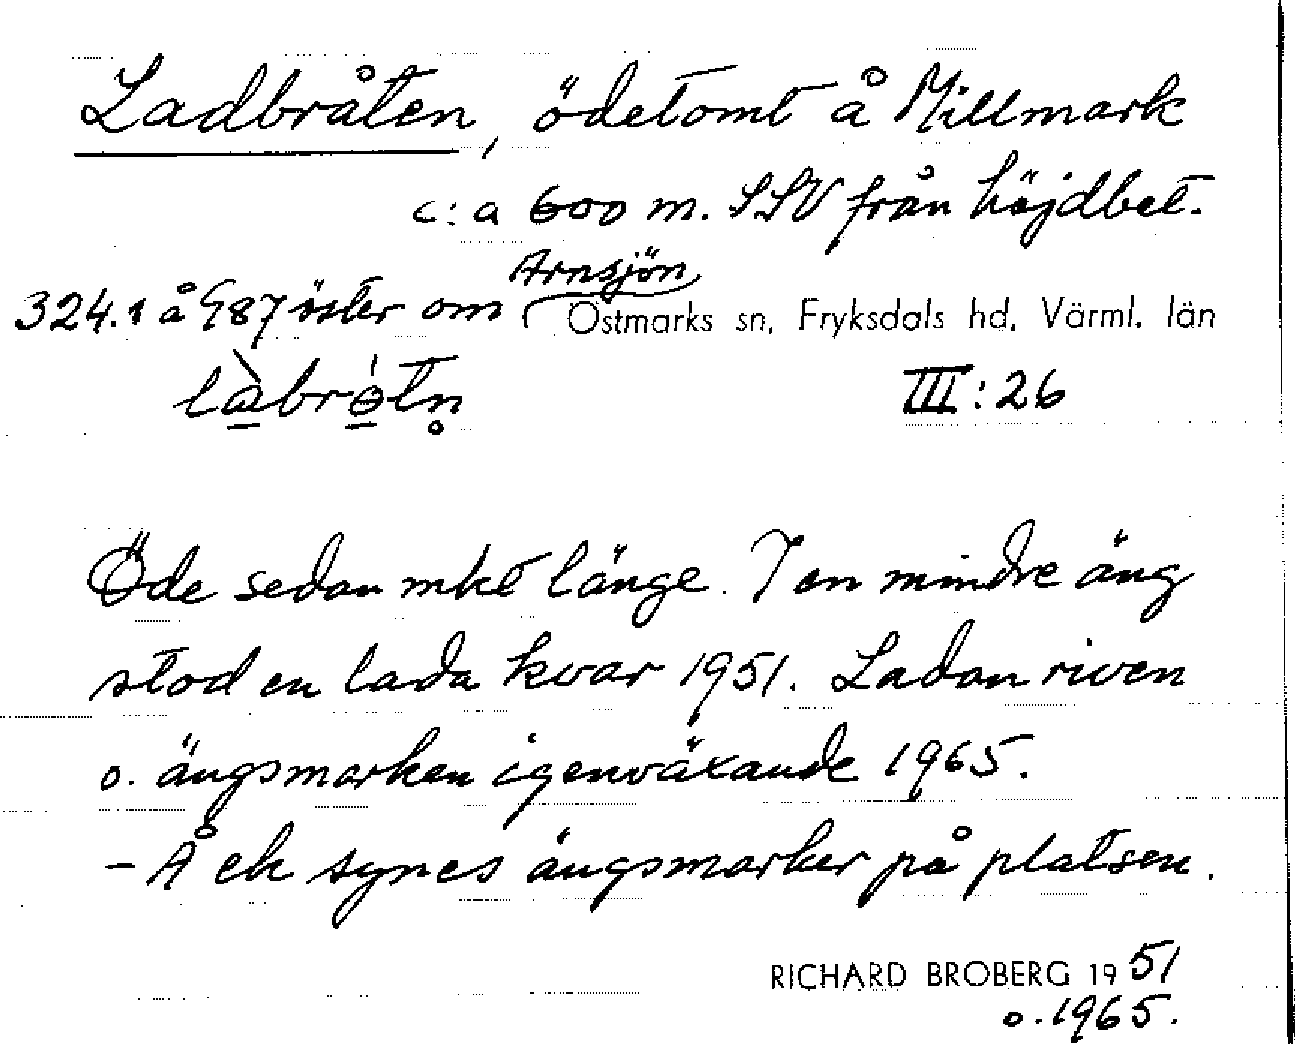 Ladbråten, ödetomt å Millmark
c:a 600 m. SSV från höjdbet.
324.1 å G87 öster om Arnsjön
Östmarks sn, Fryksdals hd. Värml. län
III:26
Öde sedan mkt länge. I en mindre äng
stod en lada kvar 1951. Ladan riven
o. ängsmarken igenväxande 1965.
- Å ek synes ängsmarker på platsen.
RICHARD BROBERG 1951
o. 1965.